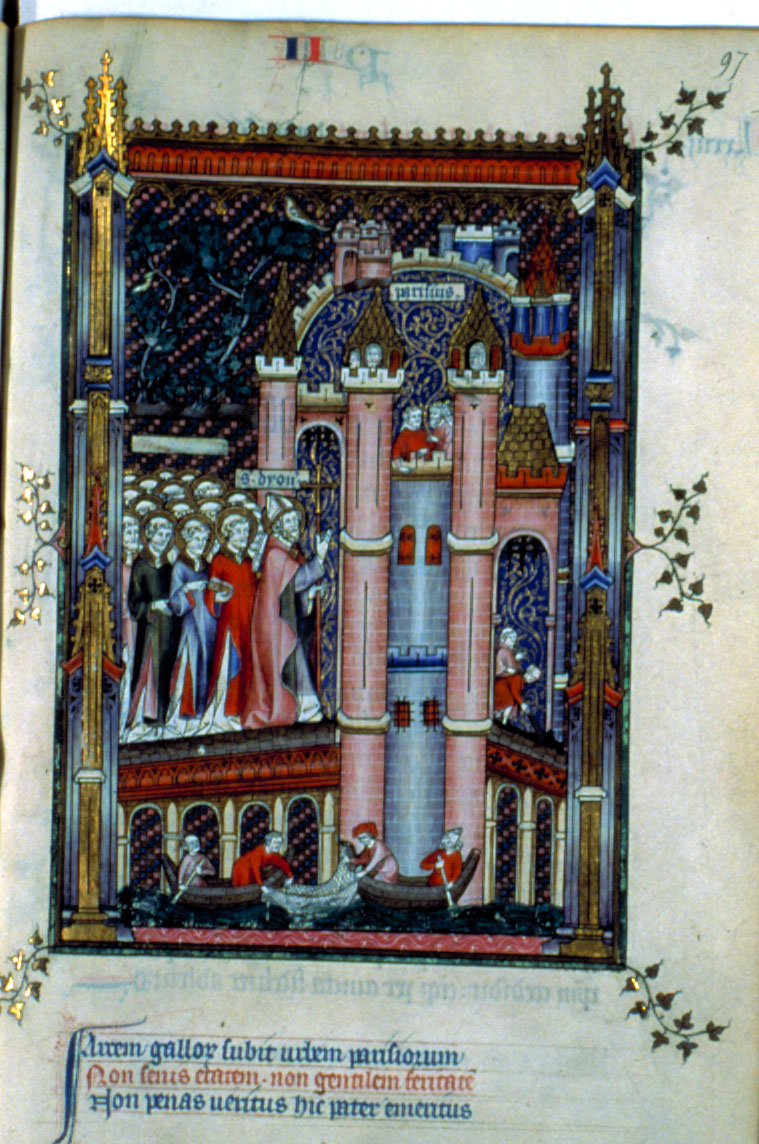 97
parisius.
s. dyoni
Artem gallor subit urbem parisiorum
Non senis etatem. non gentilem feritatē
Non penas veritus hic pater emeritus